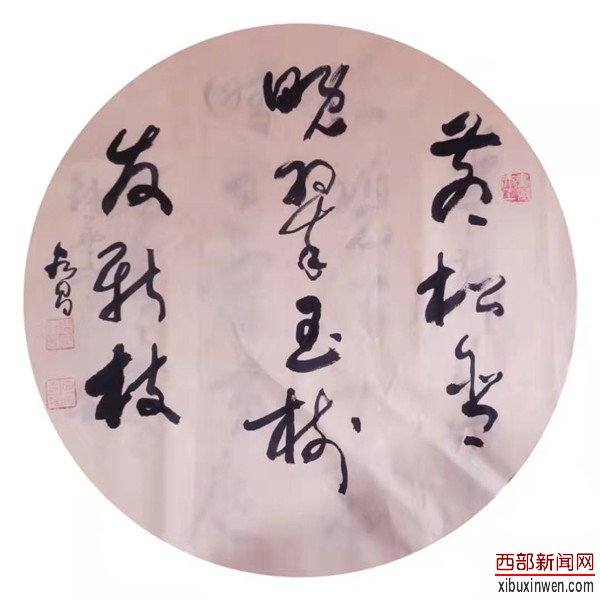 苍松含
晚翠玉树
发新枝
西部新闻网
xibuxinwen.com